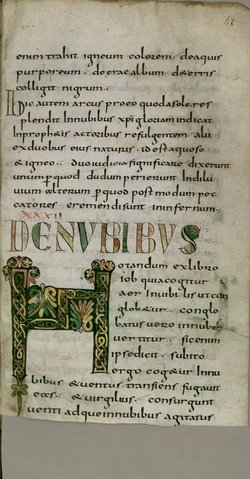 enim trahit igneum colorem. deaquis
purporeum. deaerae album. deterris
colligit nigrum.
Hic autem arcus proco quodasole. res
plendit Innubibus xpi gloriam indicat
Inprophetis actoribus refulgentem. alii
exduobus eius naturis. idest aquoso
& igneo. duo iudicia significare dixerunt
unum pquod dudum perierunt Indilu
uium. alterum pquod postmodum pec
catores cremendi sunt in infernum.
XXXII
DENUBIBUS
Notandum exlibro
iob quia cogitur
aer Innubi
glob&ur conglo
batus vero innubem
vertitur. sicenim
ipse dicit. subito
ergo cog&ur Innu
bibus & ventus transiens fugavit
eas. & virgilius. consurgunt
venti adque innubibus agitatus